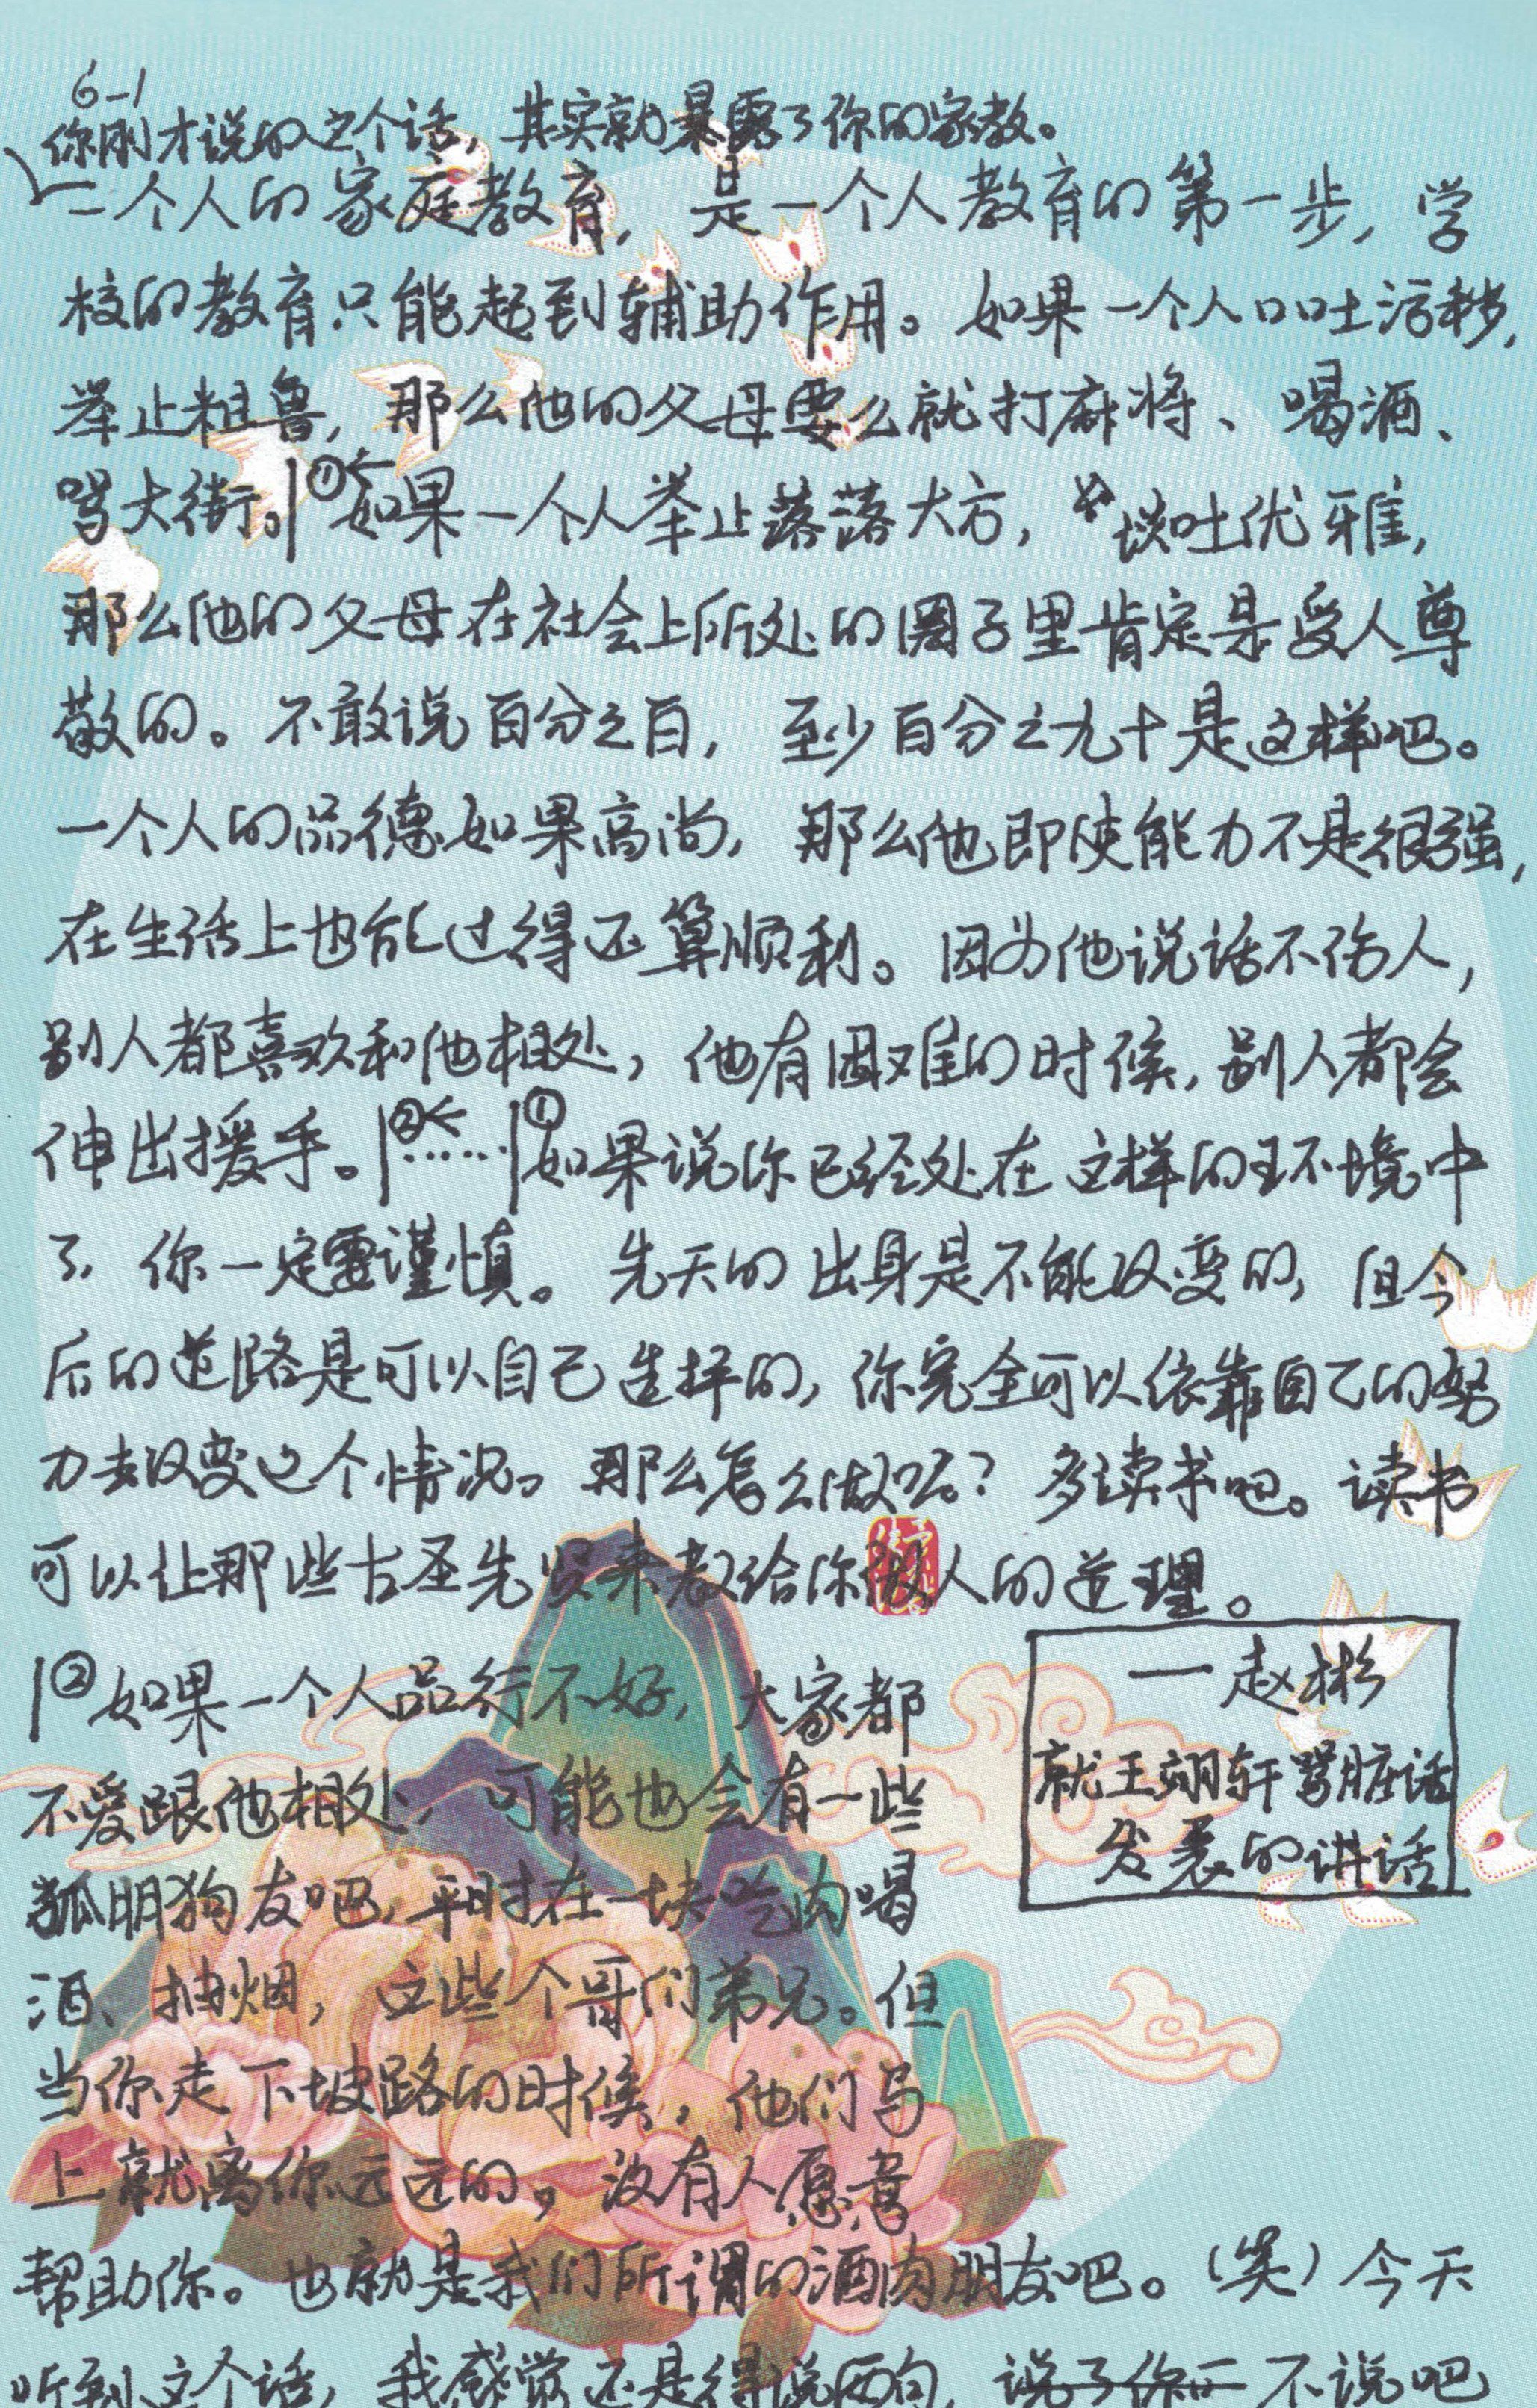 6-1
你刚才说的这个话，其实就暴露了你的家教。
一个人的家庭教育，是一个人教育的第一步，学
校的教育只能起到辅助作用。如果一个人口吐污秽，
举止粗鲁，那么他的父母要么就打麻将、喝酒、
骂大街。|①← 如果一个人举止落落大方，谈吐优雅，
那么他的父母在社会上所处的圈子里肯定是受人尊
敬的。不敢说百分之百，至少百分之九十是这样吧。
一个人的品德如果高尚，那么他即使能力不是很强，
在生活上也能过得还算顺利。因为他说话不伤人，
别人都喜欢和他相处，他有困难的时候，别人都会
伸出援手。|②←……|①如果说你已经处在这样的环境中
了，你一定要谨慎。先天的出身是不能改变的，但今
后的道路是可以自己选择的，你完全可以依靠自己的努
力去改变这个情况。那么怎么做呢？多读书吧。读书
可以让那些古圣先贤来教给你做人的道理。
|②如果一个人品行不好，大家都
不爱跟他相处，可能也会有一些
狐朋狗友吧，平时在一块吃肉喝
酒、抽烟，这些个哥们弟兄。但
当你走下坡路的时候，他们马
上就离你远远的，没有人愿意
帮助你。也就是我们所谓的酒肉朋友吧。（笑）今天
听到这个话，我感觉还是得说两句，说了你一不说吧
一赵彬
就王翊轩骂脏话
发表的讲话